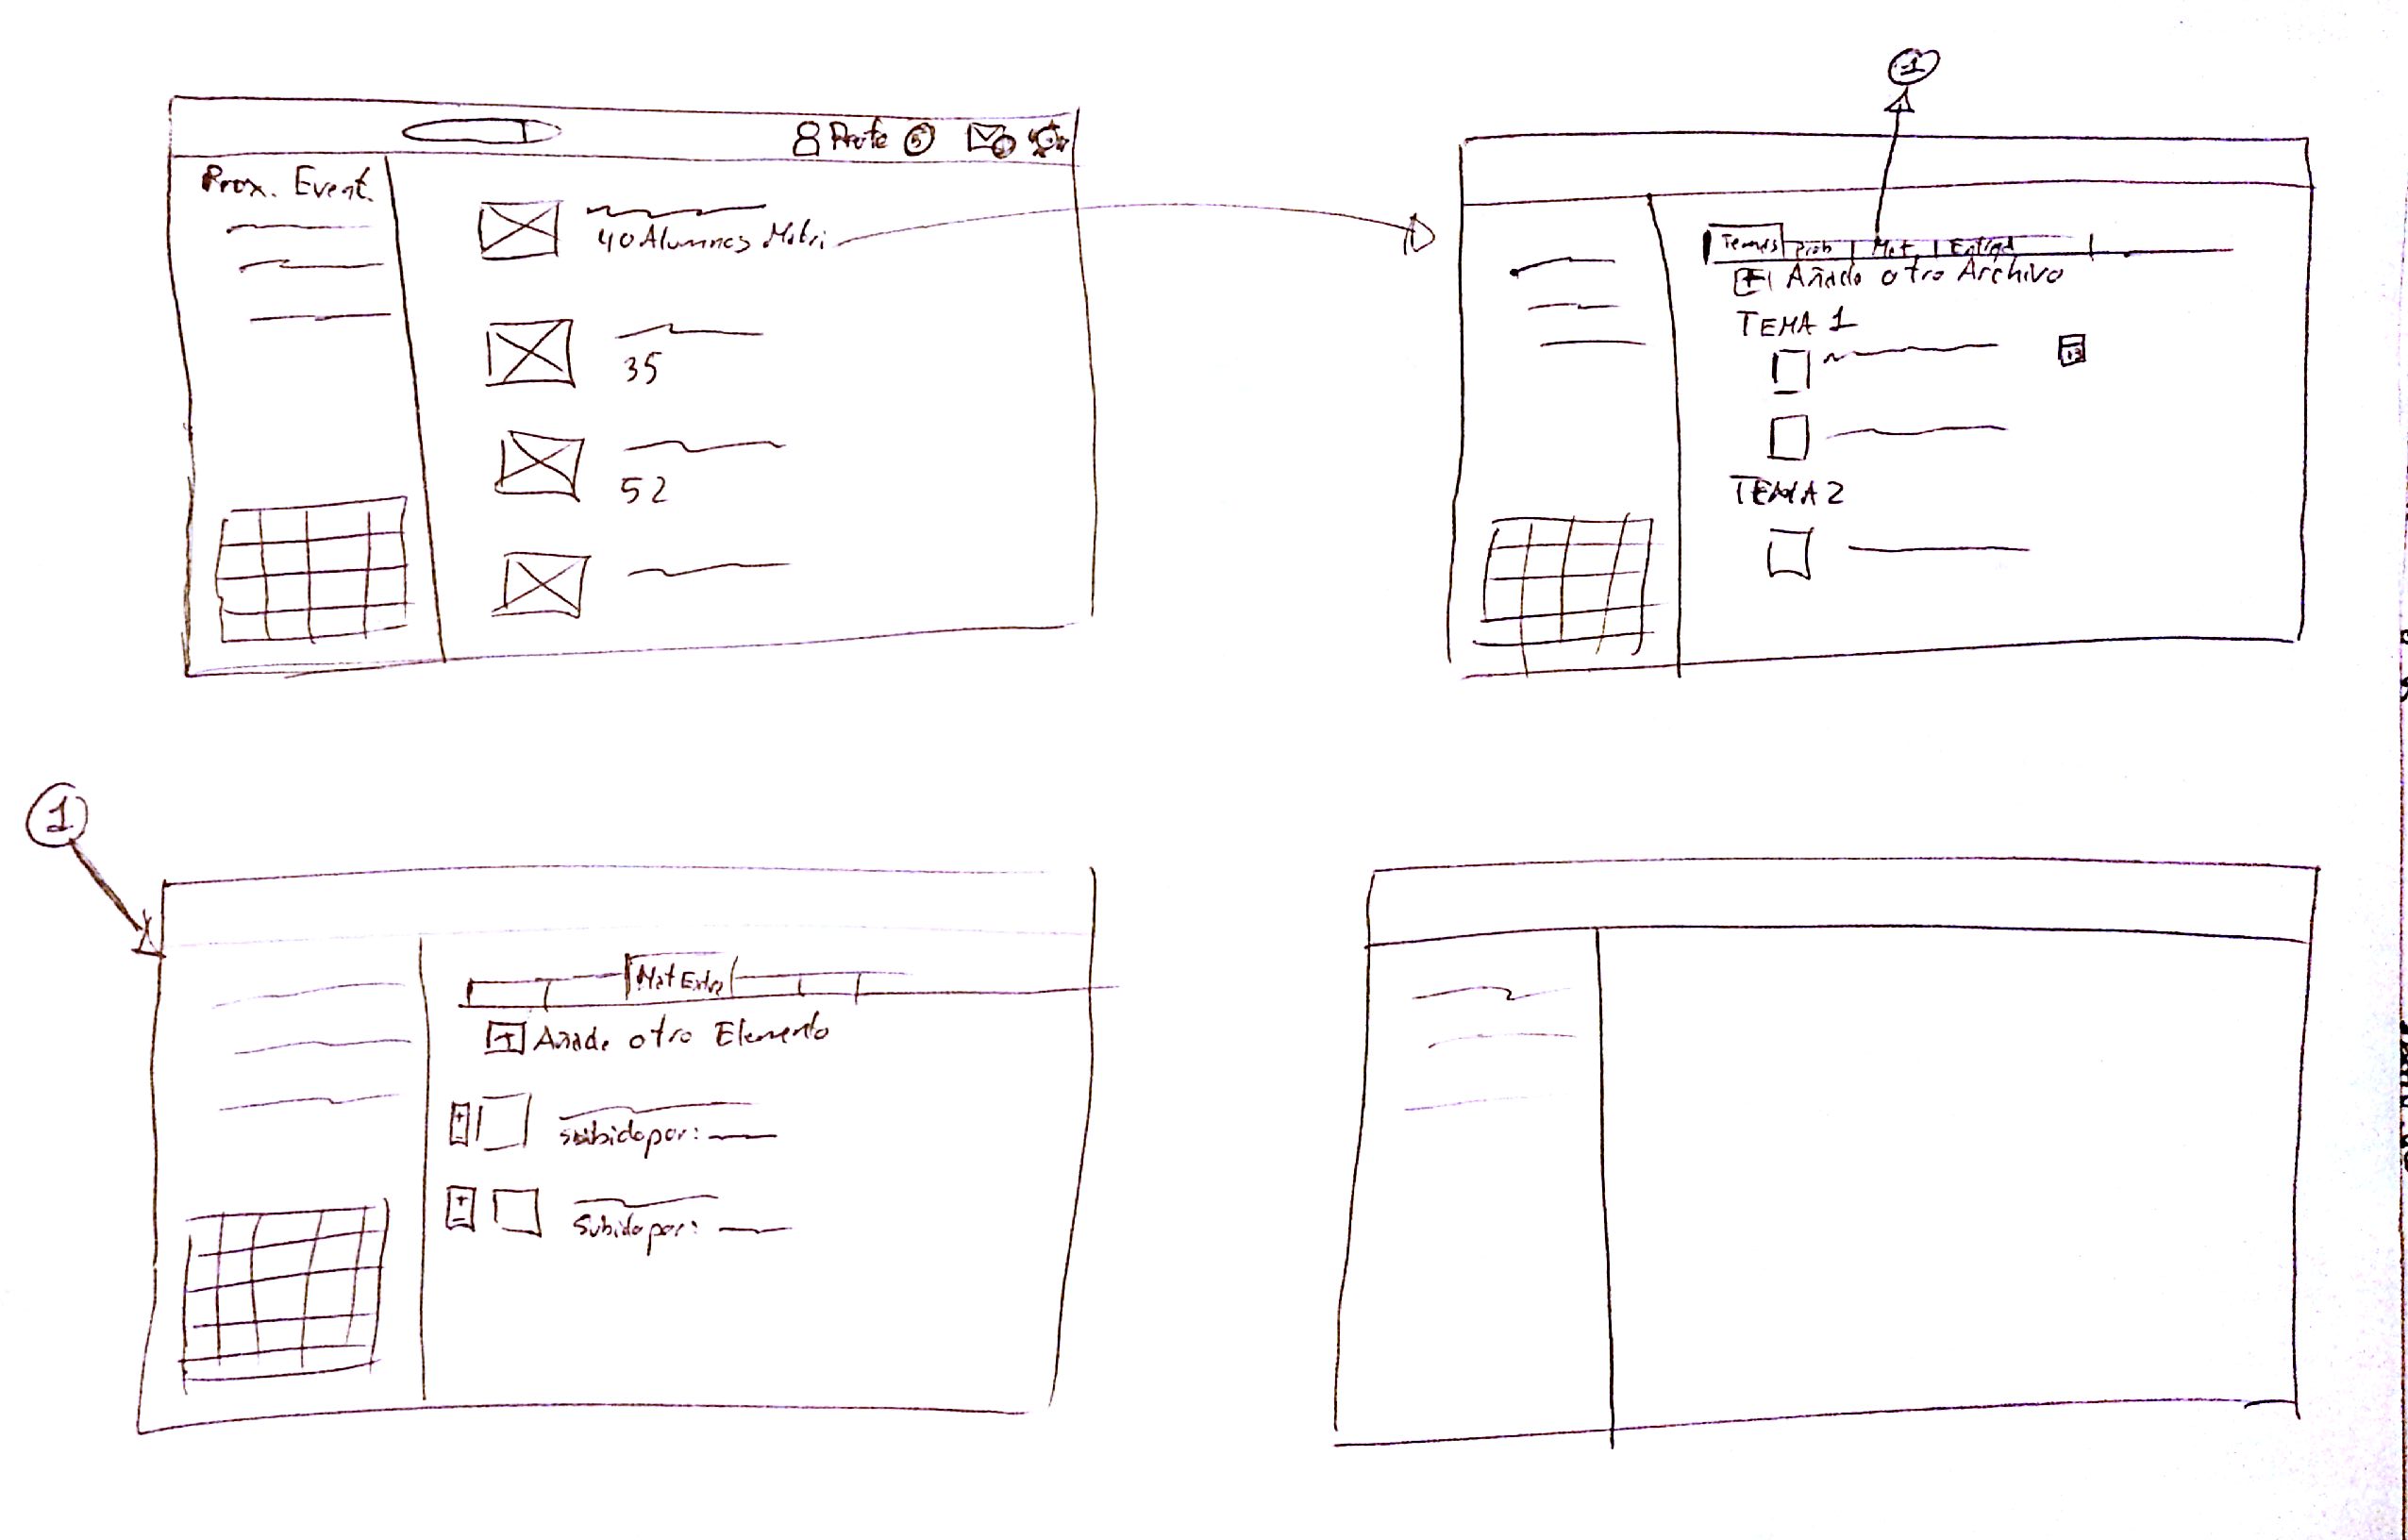 Profe 5
Prox. Event.
40 Alumnos Matri
35
52
1
Temas Prob Mat Entreg
+ Añade otro Archivo
TEMA 1
TEMA 2
1
Mat Extra
+ Añade otro Elemento
+
-
subido por:
+
-
Subido por: